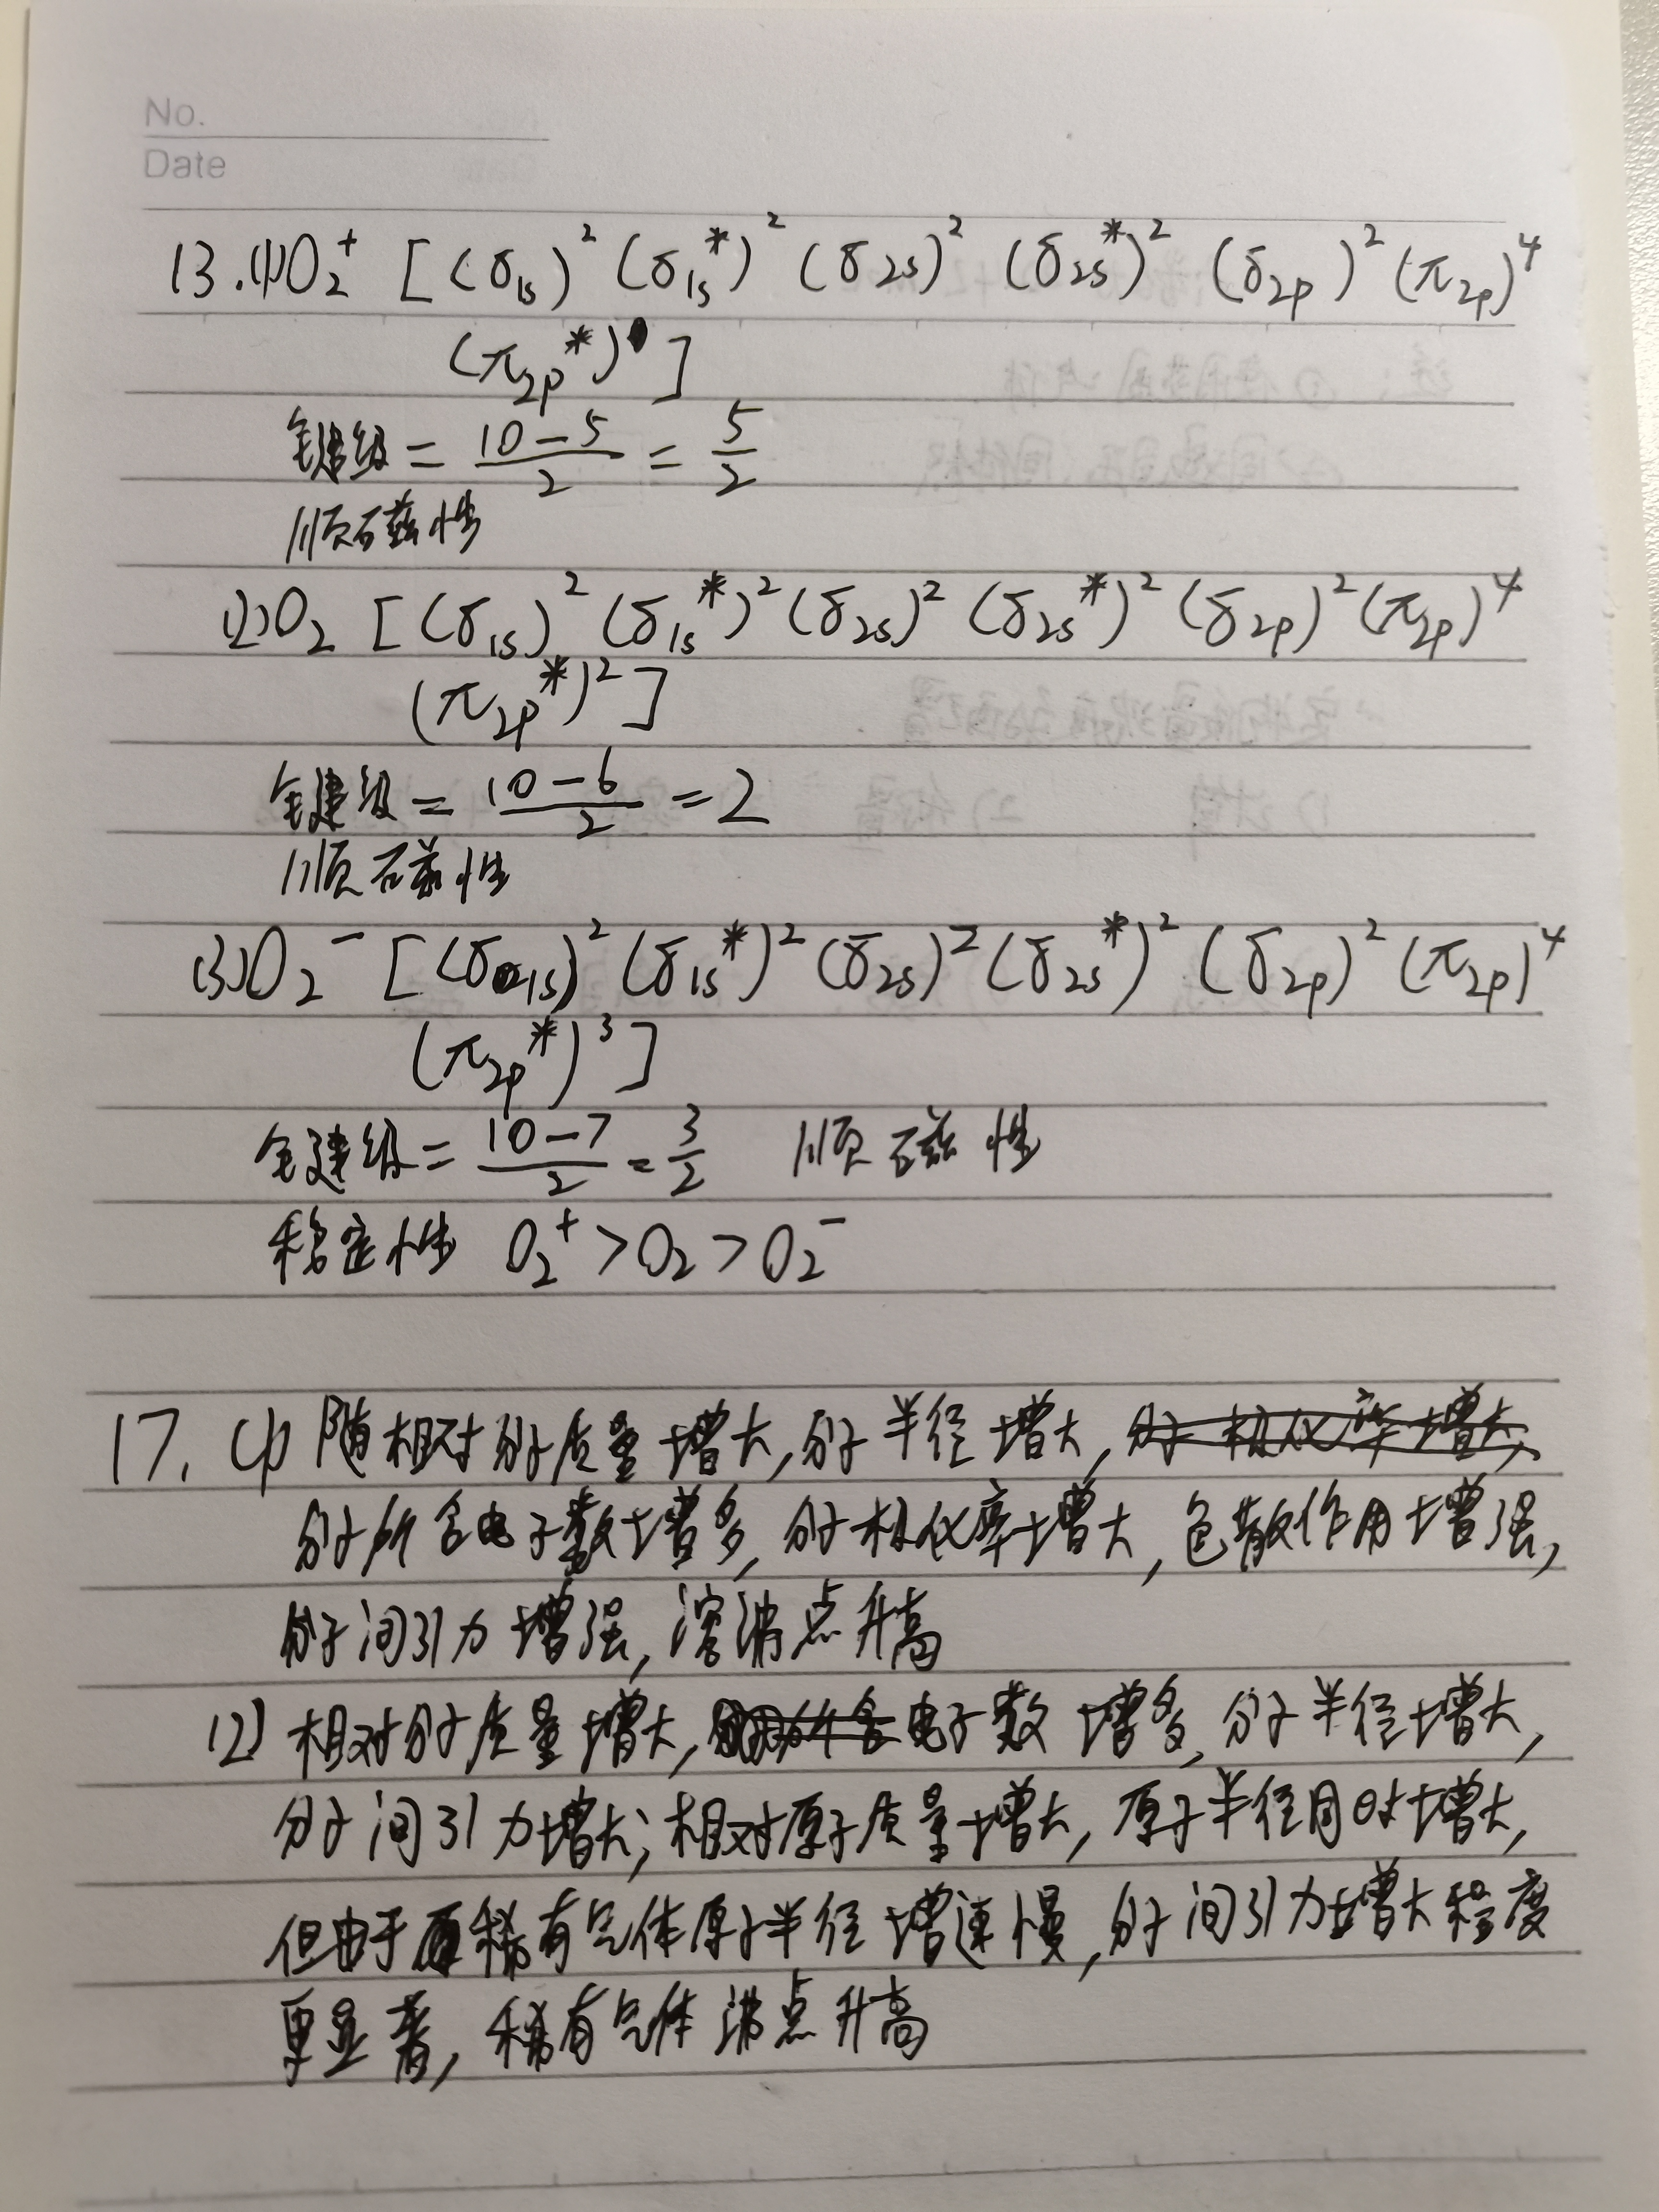 No.
Date
13.(1)O₂⁺ [(σ1s)² (σ1s*)² (σ2s)² (σ2s*)² (σ2p)² (π2p)⁴
(π2p*)¹]
键级 = (10-5)/2 = 5/2
顺磁性
(2)O₂ [(σ1s)² (σ1s*)² (σ2s)² (σ2s*)² (σ2p)² (π2p)⁴
(π2p*)²]
键级 = (10-6)/2 = 2
顺磁性
(3)O₂⁻ [(σ1s)² (σ1s*)² (σ2s)² (σ2s*)² (σ2p)² (π2p)⁴
(π2p*)³]
键级 = (10-7)/2 = 3/2 顺磁性
稳定性 O₂⁺ > O₂ > O₂⁻
17. (1) 随相对分子质量增大,分子半径增大,分子极化率增大,
分子所含电子数增多,分子极化率增大,色散作用增强,
分子间引力增强,溶沸点升高
(2) 相对分子质量增大,电子数增多,分子半径增大,
分子间引力增大;相对原子质量增大,原子半径同时增大,
但由于稀有气体原子半径增速慢,分子间引力增大程度
更显著,稀有气体沸点升高